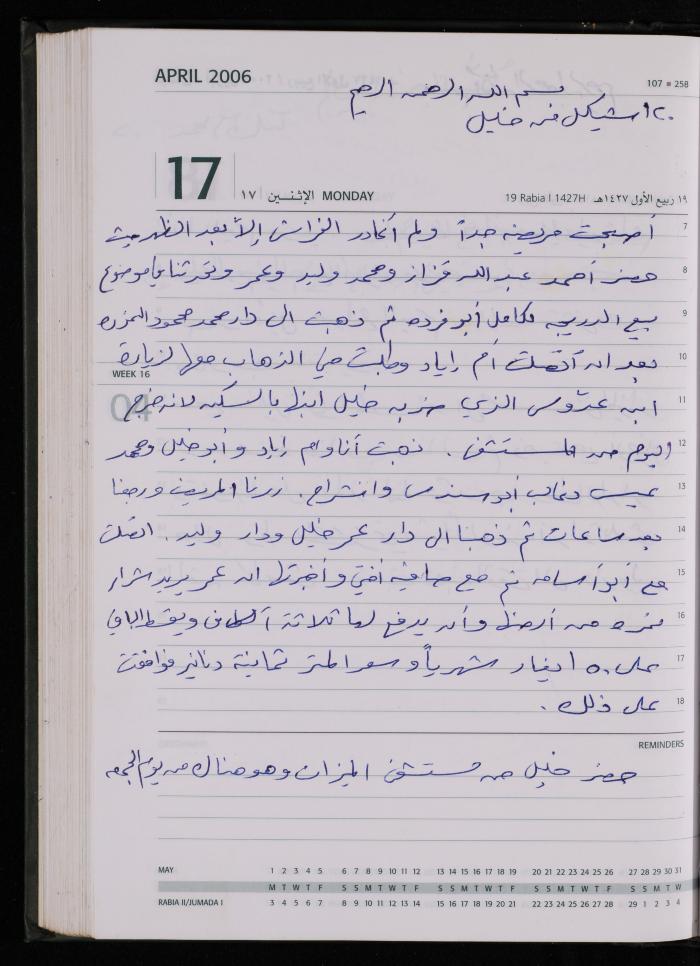 APRIL 2006
107 ■ 258
بسم الله الرحمن الرحيم
١٢٠ شيكل من خليل
17
١٧ الإثنـيـن MONDAY
19 Rabia I 1427H ١٩ ربيع الأول ١٤٢٧هـ
7 أصبحت مريضه جداً ولم أغادر الفراش إلا بعد الظهر حيث
8 حضر أحمد عبد الله قزاز ومحمد وليد وعمر وتحدثنا في موضوع
9 بيع الدرجه لكامل أبو فرده ثم ذهبت الى دار محمد محمود
10 بعد أن اتصلت أم زياد وطلبت مني الذهاب معها لزيارة
WEEK 16
11 ابن الذي ضربه خليل ابنها بالسكين لانه خرج
04
12 اليوم من المستشفى . ذهبت أنا وام زياد وأبو خليل ومحمد
13 عيسى أبو سندس وانشراح . زرنا المريض ورجعنا
14 بعد ساعات ثم ذهبنا الى دار عمر خليل ودار وليد . اتصلت
15 مع أبو أسامه ثم مع صافيه أختي وأخبرتها ان عمر يريد شراء
16 نمره من أرضها وأن يدفع لها ثلاثة آلاف ويقسط الباقي
17 على ٥٠ دينار شهرياً وسعر المتر ثمانية دنانير فوافقت
18 على ذلك .
REMINDERS
حضر خليل من مستشفى الميزان وهو هناك من يوم الجمعه
MAY 1 2 3 4 5 6 7 8 9 10 11 12 13 14 15 16 17 18 19 20 21 22 23 24 25 26 27 28 29 30 31
M T W T F S S M T W T F S S M T W T F S S M T W T F S S M T W
RABIA II/JUMADA I 3 4 5 6 7 8 9 10 11 12 13 14 15 16 17 18 19 20 21 22 23 24 25 26 27 28 29 1 2 3 4